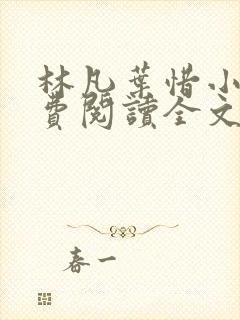 林凡葉惜小
費閱讀全文
春一